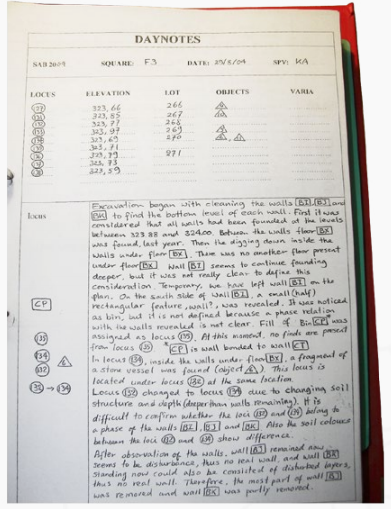 DAYNOTES
SAB 2004 SQUARE: F3 DATE: 25/8/04 SPV: KA
LOCUS ELEVATION LOT OBJECTS VARIA
323,66 266
323,85 267
323,77 268
323,97 269
323,69 270
323,71
323,79 271
323,73
323,59
LOCUS
Excavation began with cleaning the walls BI, BJ and
BK to find the bottom level of each wall. First it was
considered that all walls had been founded at the levels
between 323.88 and 324.00. Between the walls floor BX
was found, last year. Then the digging down inside the
walls under floor BX. There was no another floor present
under floor BX. Wall BI seems to continue founding
deeper, but it was not really clear to define this
consideration. Temporary, we have left wall BI on the
plan. On the south side of wall BI, a small (half)
rectangular feature, wall?, was revealed. It was noticed
as bin, but it is not defined because a phase relation
CP
with the walls revealed is not clear. Fill of Bin CP was
135
assigned as locus 135. At this moment, no finds are present
from locus 135. CP is wall bonded to wall CT
134
In locus 134, inside the walls under floor BX, a fragment of
132
a stone vessel was found (object 6). This locus is
located under locus 132 at the same location
132 → 134
Locus 132 changed to locus 134 due to changing soil
structure and depth (deeper than walls remaining). It is
difficult to confirm whether the loci 132 and 134 belong to
a phase of the walls BI, BJ and BK. Also the soil colours
between the loci 132 and 134 show difference.
After observation of the walls, wall BJ remained now
seems to be disturbance, thus no real wall, and wall BK
standing now could also be consisted of disturbed layers,
thus no real wall. Therefore, the most part of wall BJ
was removed and wall BK was partly removed.